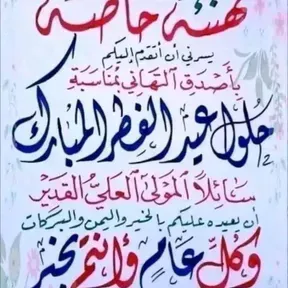 تهنئة خاصة
يسرني أن أتقدم إليكم
بأصدق التهاني بمناسبة
حلول عيد الفطر المبارك
سائلاً المولى العلي القدير
أن يعيده عليكم بالخير واليمن والبركات
وكل عام وأنتم بخير